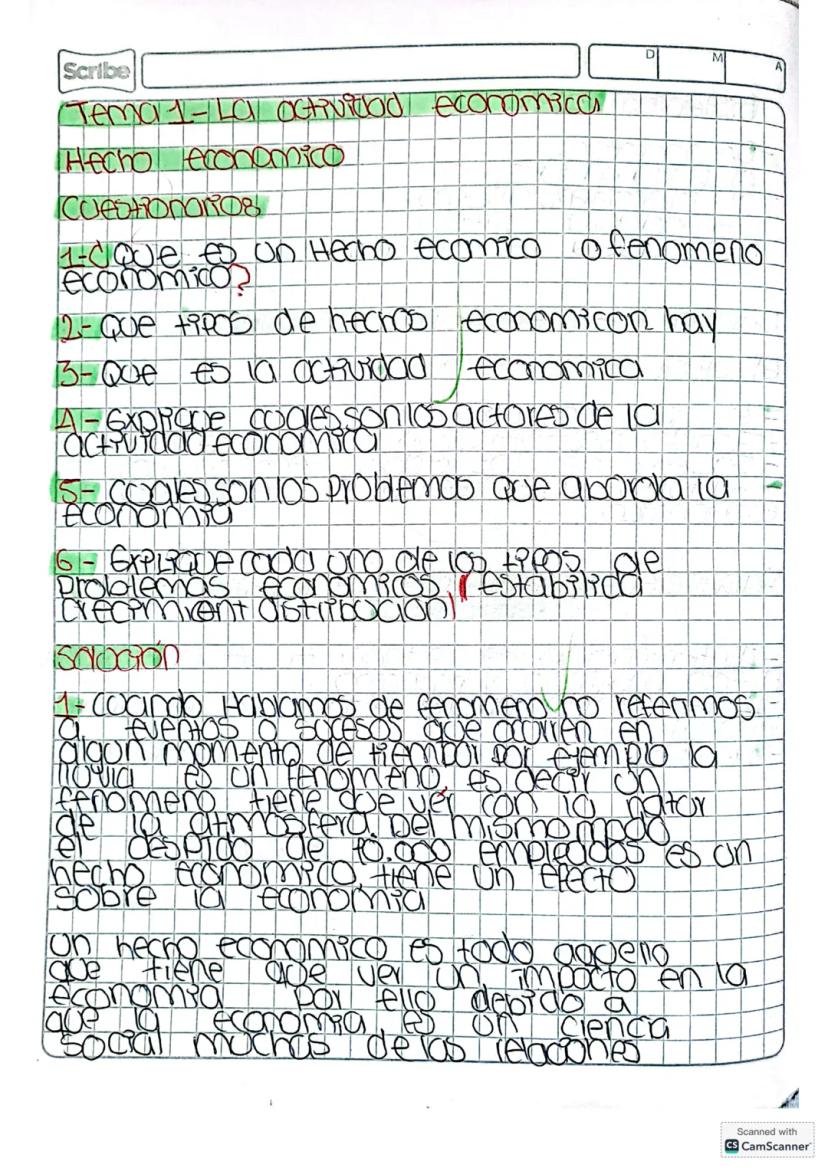 Scribe
D M A
Tema 1- La actividad economica
Hecho economico
Cuestionarios
1-¿Que es un Hecho ecomico o fenomeno
economico?
2- Que tipos de hechos economicon hay
3- Que es la actividad economica
4- Explique cuales son los actores de la
actividad economica
5- cuales son los problemas que aborda la
economia
6- Explique cada uno de los tipos de
problemas economicos, (estabilida
crecimient distribucion)
Solución
1- cuando Hablamos de fenomeno no referimos
a eventos o sucesos que ocurren en
algun momento de tiempo, por ejemplo la
lluvia es un fenomeno, es decir un
fenomeno tiene que ver con la natur
de la atmosfera. Del mismo modo
el despido de 10.000 empleados es un
hecho economico, tiene un efecto
sobre la economia
Un hecho economico es todo aquello
que tiene que ver un impacto en la
economia por ello debido a
que la economia es un cienca
social muchas de las relaciones
Scanned with
CS CamScanner